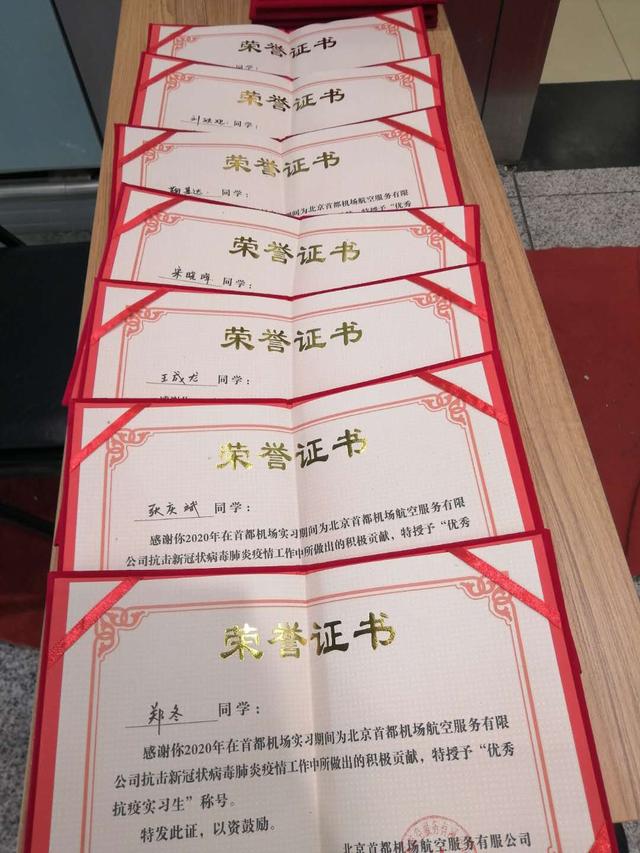 荣誉证书
同学：
荣誉证书
同学：
荣誉证书
同学：
期间为北京首都机场航空服务有限
特授予“优秀
荣誉证书
宋晓峰 同学：
荣誉证书
王成龙 同学：
荣誉证书
张庆斌 同学：
感谢你2020年在首都机场实习期间为北京首都机场航空服务有限
公司抗击新冠状病毒肺炎疫情工作中所做出的积极贡献，特授予“优秀
荣誉证书
郑冬 同学：
感谢你2020年在首都机场实习期间为北京首都机场航空服务有限
公司抗击新冠状病毒肺炎疫情工作中所做出的积极贡献，特授予“优秀
抗疫实习生”称号。
特发此证，以资鼓励。
北京首都机场航空服务有限公司